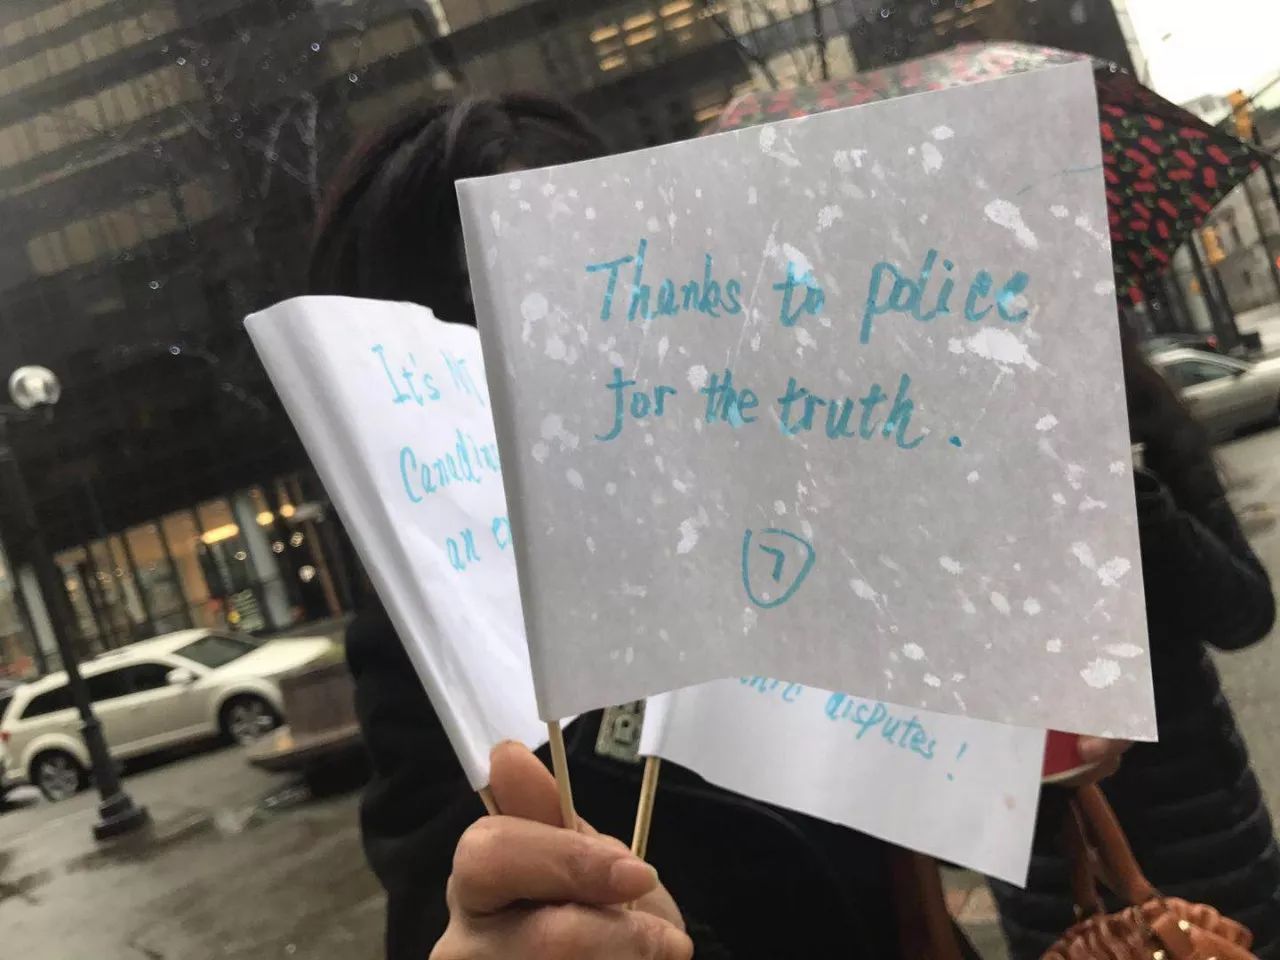 Thanks to police
for the truth.
7
It's
an
disputes!